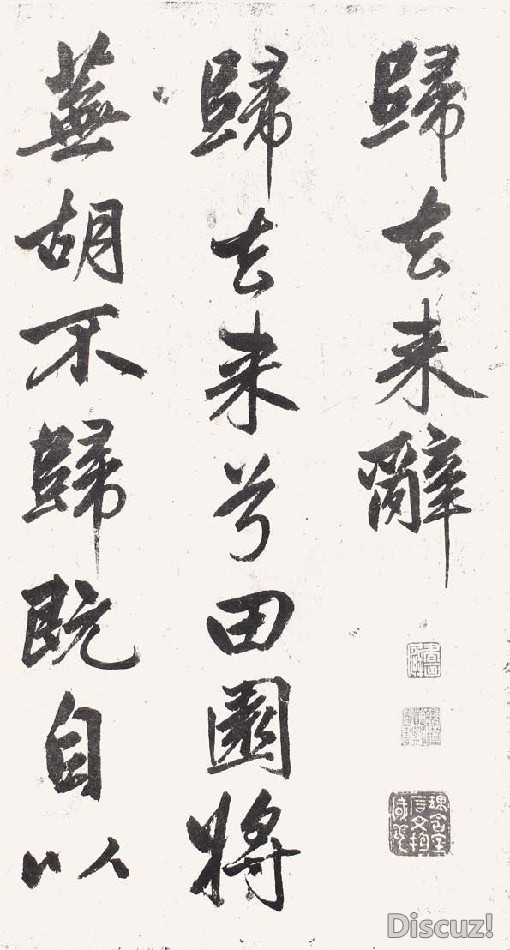 歸去来辭
歸去来兮田園將
蕪胡不歸既自以
Discuz!